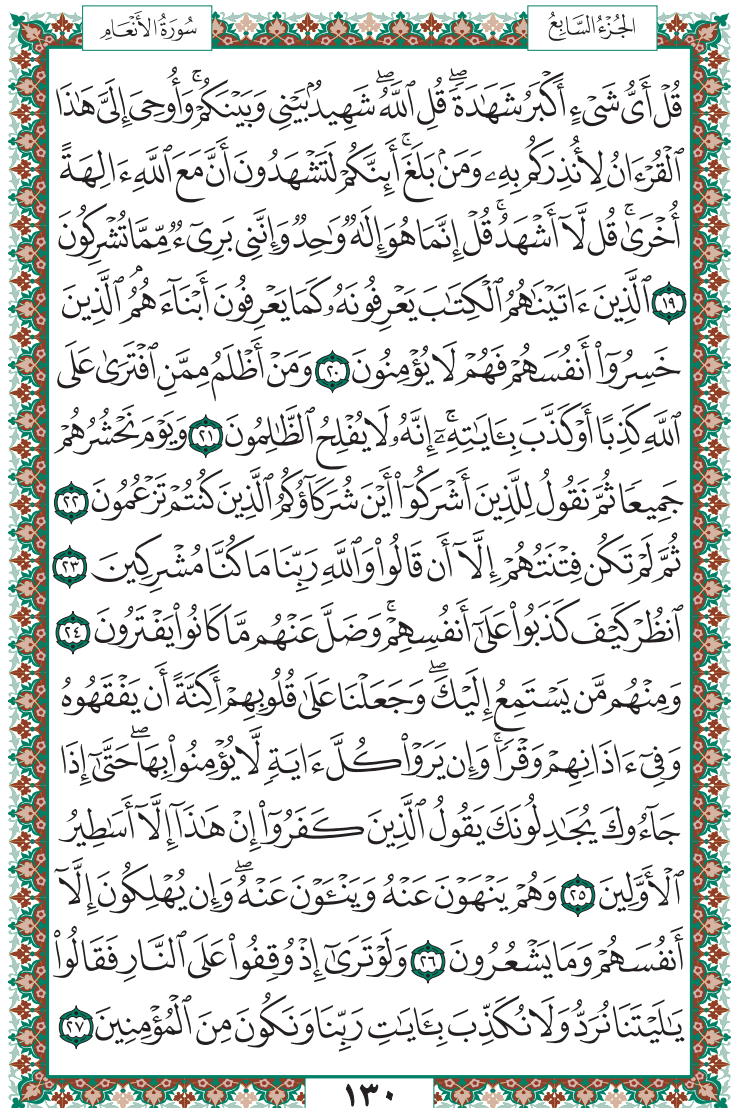 سُورَةُ الأَنْعَامِ
الجُزْءُ السَّابِعُ
قُلْ أَيُّ شَىْءٍ أَكْبَرُ شَهَٰدَةًۖ قُلِ ٱللَّهُۖ شَهِيدُۢ بَيْنِى وَبَيْنَكُمْۚ وَأُوحِىَ إِلَىَّ هَٰذَا
ٱلْقُرْءَانُ لِأُنذِرَكُم بِهِۦ وَمَنۢ بَلَغَۚ أَئِنَّكُمْ لَتَشْهَدُونَ أَنَّ مَعَ ٱللَّهِ ءَالِهَةً
أُخْرَىٰۚ قُل لَّآ أَشْهَدُۚ قُلْ إِنَّمَا هُوَ إِلَٰهٌ وَٰحِدٌ وَإِنَّنِى بَرِىٓءٌ مِّمَّا تُشْرِكُونَ
١٩ ٱلَّذِينَ ءَاتَيْنَٰهُمُ ٱلْكِتَٰبَ يَعْرِفُونَهُۥ كَمَا يَعْرِفُونَ أَبْنَآءَهُمُۘ ٱلَّذِينَ
خَسِرُوٓا۟ أَنفُسَهُمْ فَهُمْ لَا يُؤْمِنُونَ ٢٠ وَمَنْ أَظْلَمُ مِمَّنِ ٱفْتَرَىٰ عَلَى
ٱللَّهِ كَذِبًا أَوْ كَذَّبَ بِـَٔايَٰتِهِۦٓۚ إِنَّهُۥ لَا يُفْلِحُ ٱلظَّٰلِمُونَ ٢١ وَيَوْمَ نَحْشُرُهُمْ
جَمِيعًا ثُمَّ نَقُولُ لِلَّذِينَ أَشْرَكُوٓا۟ أَيْنَ شُرَكَآؤُكُمُ ٱلَّذِينَ كُنتُمْ تَزْعُمُونَ ٢٢
ثُمَّ لَمْ تَكُن فِتْنَتُهُمْ إِلَّآ أَن قَالُوا۟ وَٱللَّهِ رَبِّنَا مَا كُنَّا مُشْرِكِينَ ٢٣
ٱنظُرْ كَيْفَ كَذَبُوا۟ عَلَىٰٓ أَنفُسِهِمْۚ وَضَلَّ عَنْهُم مَّا كَانُوا۟ يَفْتَرُونَ ٢٤
وَمِنْهُم مَّن يَسْتَمِعُ إِلَيْكَۖ وَجَعَلْنَا عَلَىٰ قُلُوبِهِمْ أَكِنَّةً أَن يَفْقَهُوهُ
وَفِىٓ ءَاذَانِهِمْ وَقْرًاۚ وَإِن يَرَوْا۟ كُلَّ ءَايَةٍ لَّا يُؤْمِنُوا۟ بِهَاۖ حَتَّىٰٓ إِذَا
جَآءُوكَ يُجَٰدِلُونَكَ يَقُولُ ٱلَّذِينَ كَفَرُوٓا۟ إِنْ هَٰذَآ إِلَّآ أَسَٰطِيرُ
ٱلْأَوَّلِينَ ٢٥ وَهُمْ يَنْهَوْنَ عَنْهُ وَيَنْـَٔوْنَ عَنْهُۖ وَإِن يُهْلِكُونَ إِلَّآ
أَنفُسَهُمْ وَمَا يَشْعُرُونَ ٢٦ وَلَوْ تَرَىٰٓ إِذْ وُقِفُوا۟ عَلَى ٱلنَّارِ فَقَالُوا۟
يَٰلَيْتَنَا نُرَدُّ وَلَا نُكَذِّبَ بِـَٔايَٰتِ رَبِّنَا وَنَكُونَ مِنَ ٱلْمُؤْمِنِينَ ٢٧
١٣٠